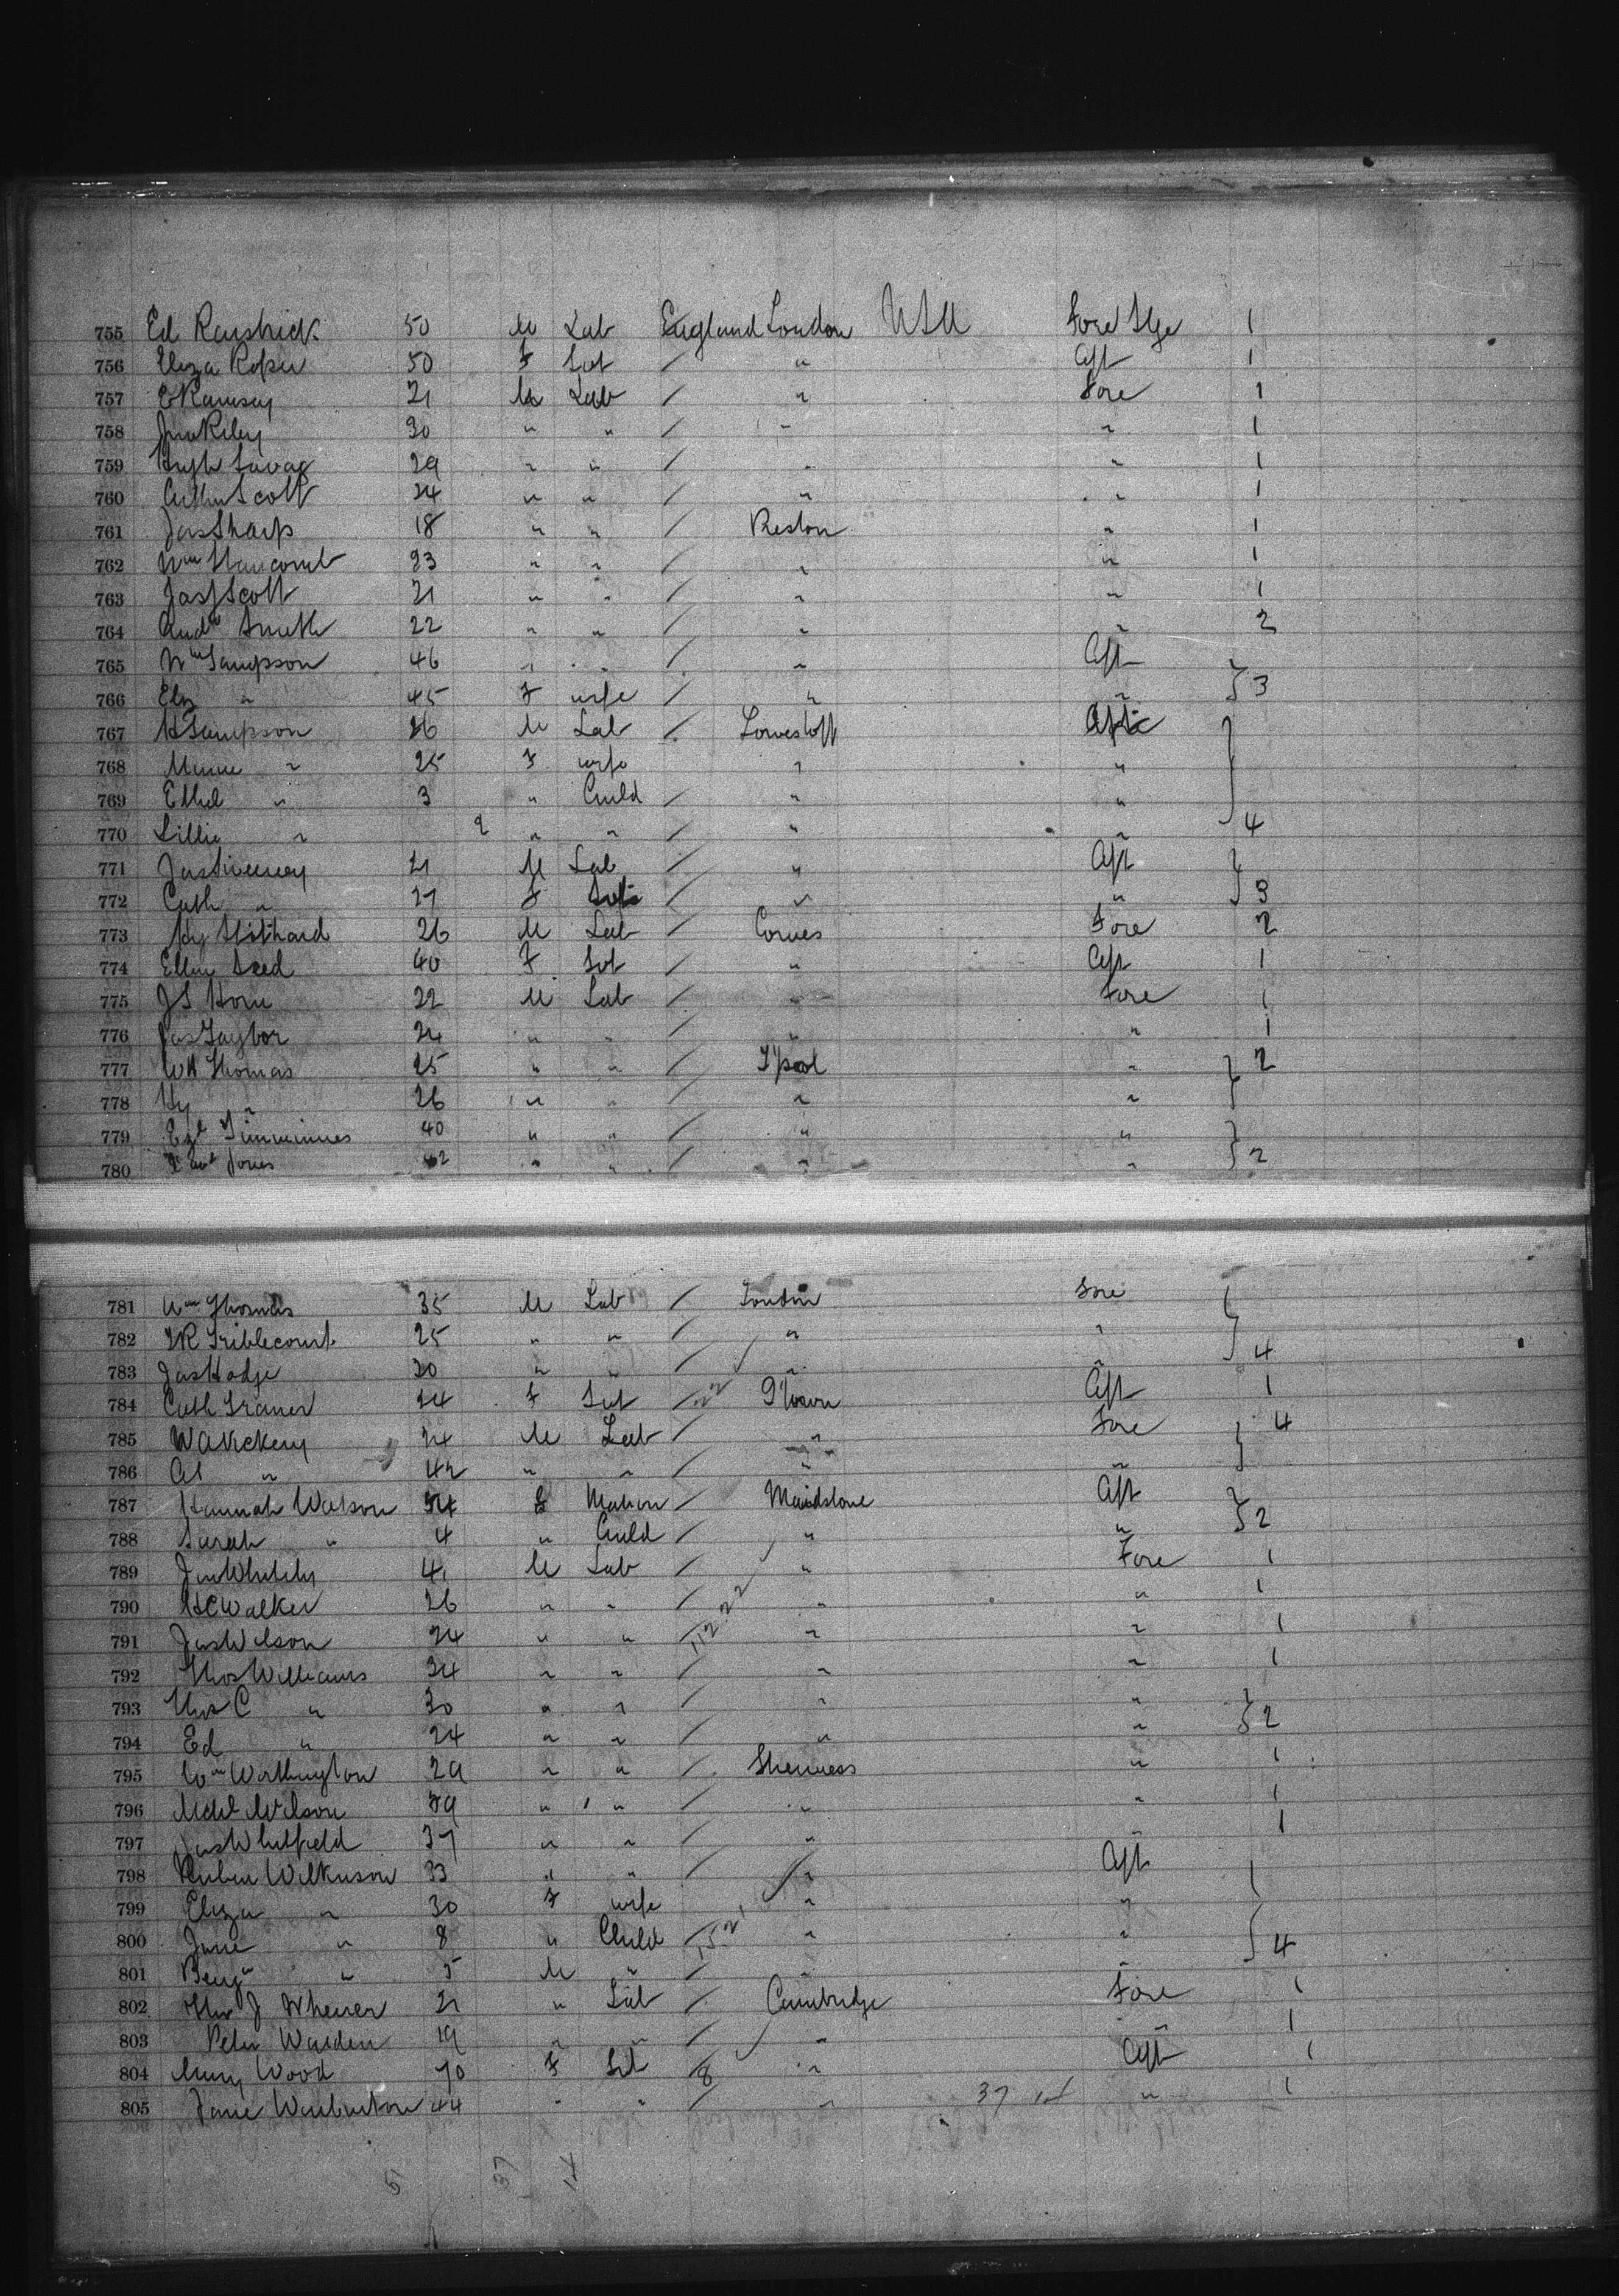 755 Ed Raistrick 50 M Lab England London USA Fore Stge 1
756 Eliza Roper 50 F Svt / " Aft 1
757 E Ramsay 21 M Lab / " Fore 1
758 Jno Riley 30 " " / " " 1
759 Hugh Savage 29 " " / " " 1
760 Arthur Scott 24 " " / " " 1
761 Jas Sharp 18 " " / Preston " 1
762 Wm 23 " " / " " 1
763 Jas J Scott 21 " " / " " 1
764 Andw Smith 22 " " / " " 2
765 Wm Sampson 46 " " / " Aft
766 Eliz " 45 F wife / " " } 3
767 H Sampson 26 M Lab / Lowestoft Aft
768 Minnie " 25 F wife " "
769 Ethel " 3 " Child / " "
770 Lillie " 9 " " / " " } 4
771 Jas Sweeney 21 M Lab / " Aft
772 Cath " 27 F / " " } 3
773 Hy Stothard 26 M Lab / Cowes Fore 2
774 Ellen Seed 40 F Svt / " Aft 1
775 J S Horn 22 M Lab / " Fore 1
776 Jas Taylor 24 " " / " " 1
777 W H Thomas 25 " " / L'pool " } 2
778 Hy " 26 " " / " "
779 Timmimes 40 " " / " "
780 Jones 42 " " / " " } 2
781 Wm Thomas 35 M Lab / London Fore
782 Triblecourt 25 " " / " " } 4
783 Jas Hodge 30 " " / " "
784 Cath Traner 24 F Svt / Aft 1
785 W A Vickery 24 M Lab / " Fore } 4
786 Al " 42 " " / " "
787 Hannah Watson 54 F Matron / Maidstone Aft
788 Sarah " 4 " Child / " " } 2
789 Jno Whitely 41 M Lab / " Fore 1
790 H C Walker 26 " " / " " 1
791 Jas Wilson 24 " " / " " 1
792 Thos Williams 34 " " / " " 1
793 Thos C " 30 " " / " " } 2
794 Ed " 24 " " / " "
795 Wm Worthington 29 " " / Sheerness " 1
796 Wilson 39 " " / " " 1
797 Jas Whitfield 37 " " / " " 1
798 Reuben Wilkinson 33 " " / " Aft
799 Eliza " 30 F wife " "
800 Jane " 8 " Child / " " } 4
801 Benjn " 5 M " / " "
802 Thos J Whener 21 " Lab / Cambridge Fore 1
803 Peter Warden 19 " " / " " 1
804 Mary Wood 70 F Svt / 8 " Aft 1
805 Jane Warburton 44 " " / " 37 14 " 1
5 37 14